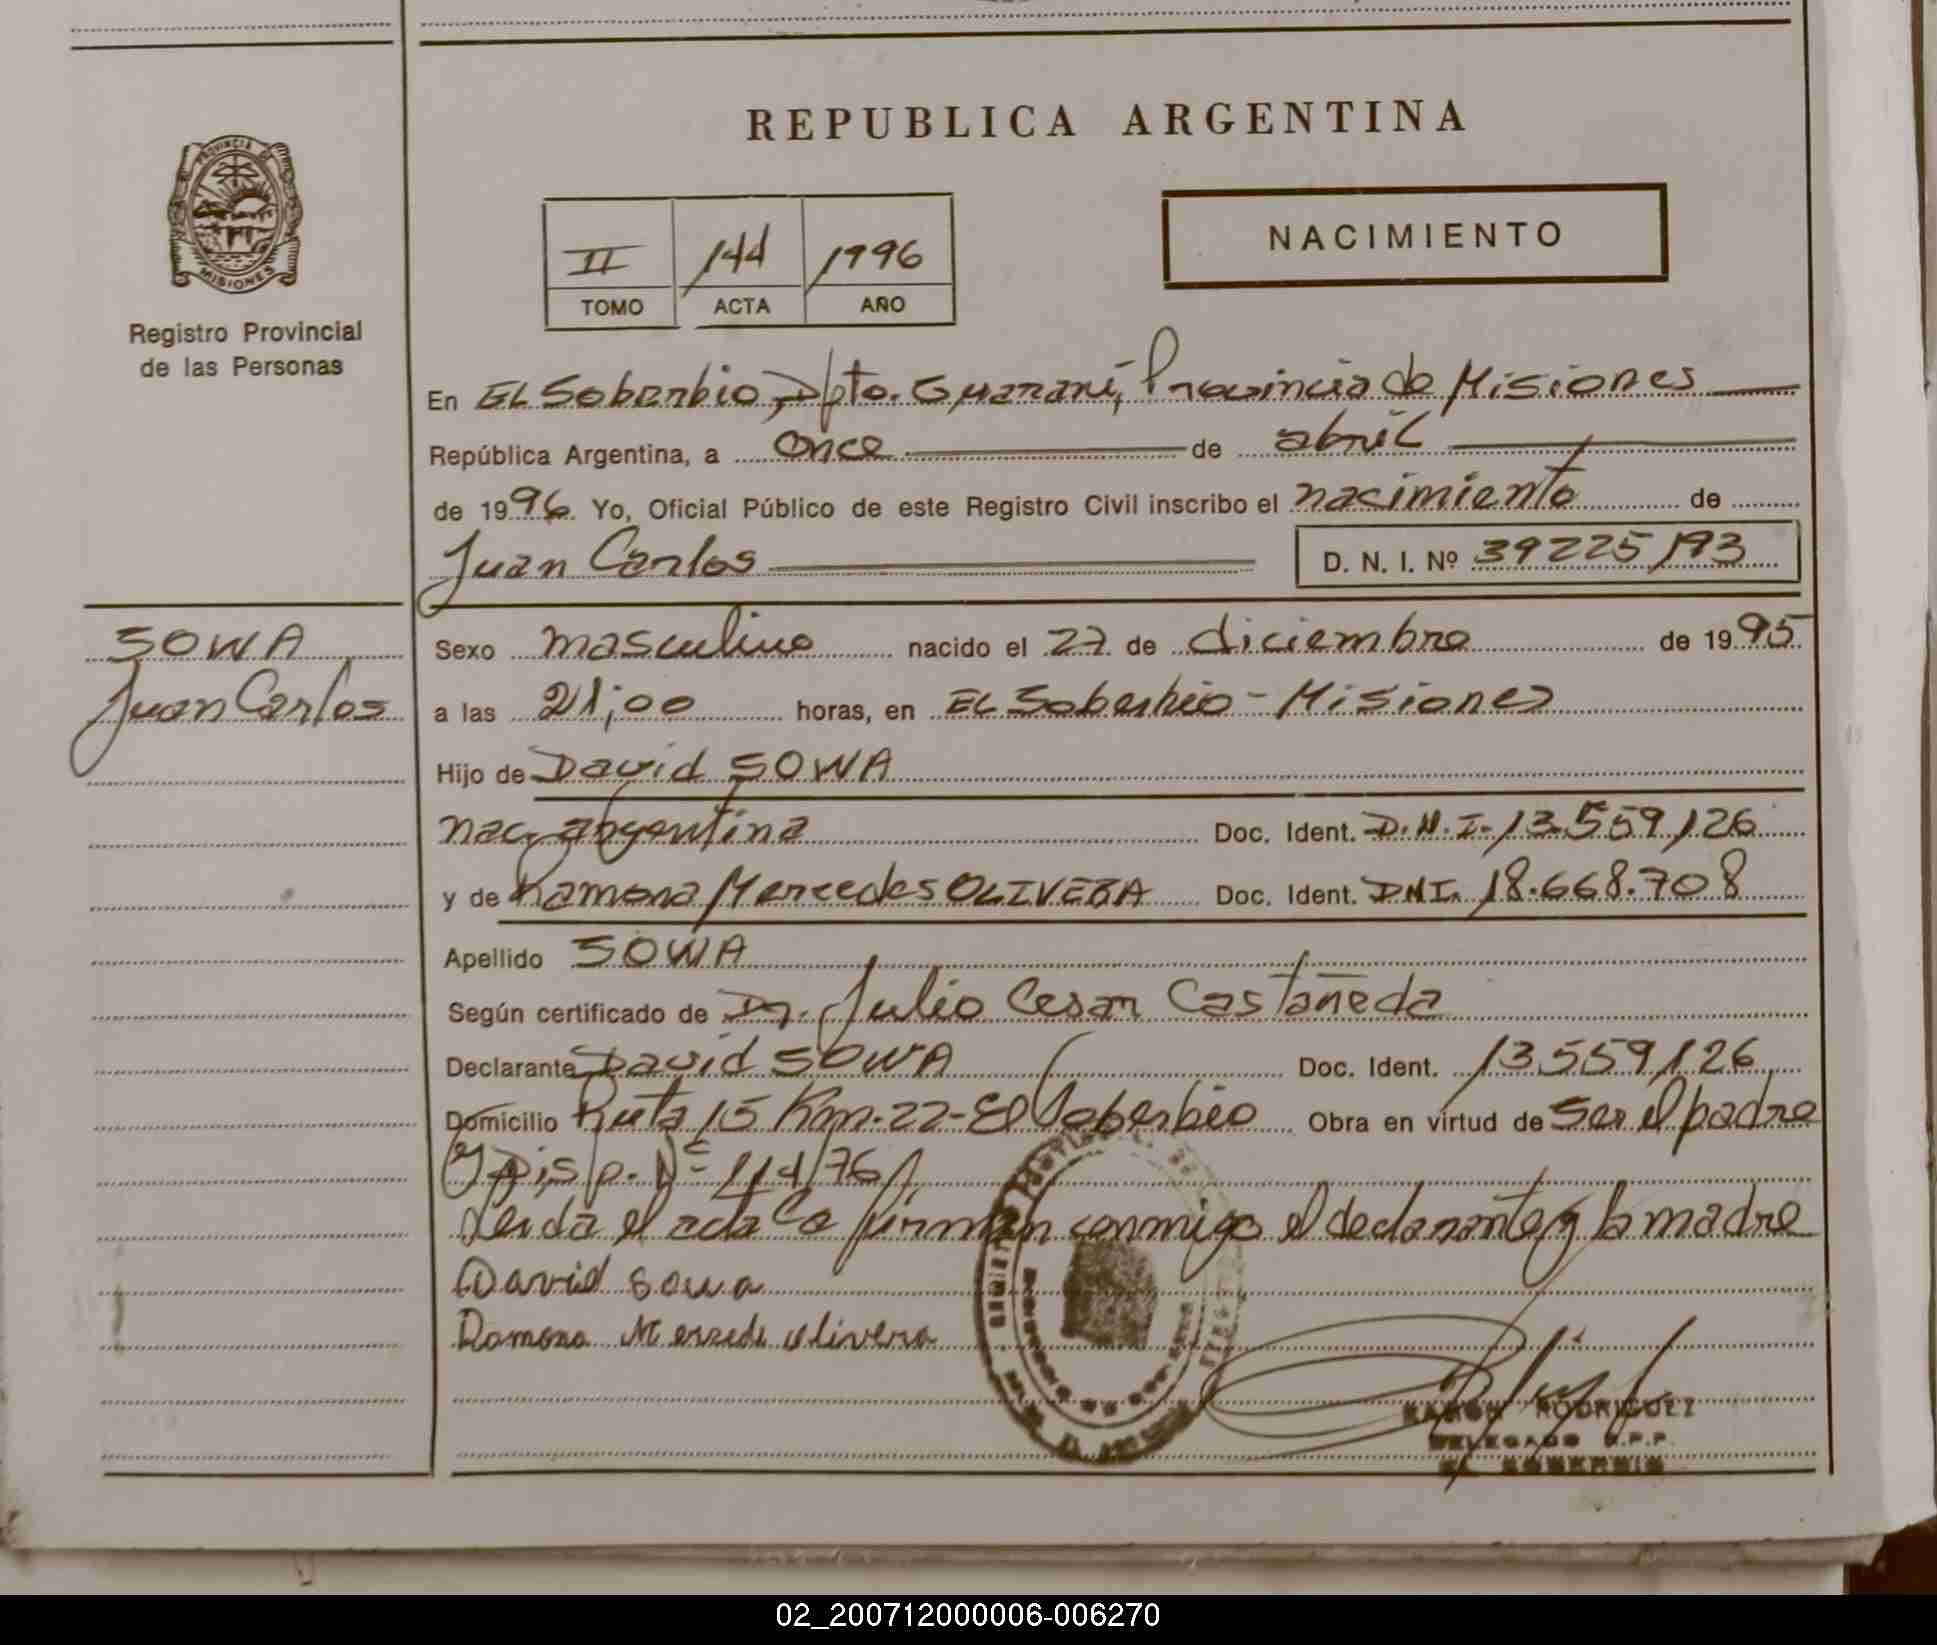 REPUBLICA ARGENTINA
PROVINCIA DE
MISIONES
Registro Provincial
de las Personas
II 144 1996
TOMO ACTA AÑO
NACIMIENTO
En EL Soberbio, Dpto. Guaraní, Provincia de Misiones
República Argentina, a once de abril
de 1996. Yo, Oficial Público de este Registro Civil inscribo el nacimiento de
Juan Carlos D. N. I. Nº 39225193
SOWA
Juan Carlos
Sexo masculino nacido el 27 de diciembre de 1995
a las 21;00 horas, en EL Soberbio - Misiones
Hijo de David SOWA
nac. argentina Doc. Ident. D.N.I. 13.559,126
y de Ramona Mercedes OLIVERA Doc. Ident. DNI. 18.668.708
Apellido SOWA
Según certificado de Dr. Julio Cesar Castañeda
Declarante David SOWA Doc. Ident. 13.559,126
Domicilio Ruta 15 Km-22-El Soberbio Obra en virtud de Ser el padre
y Disp. Nº 114/76,
Leida el acta la firman conmigo el declarante y la madre
David Sowa
Ramona Mersede olivera
RAMON RODRIGUEZ
DELEGADO R.P.P.
EL SOBERBIO
02_200712000006-006270